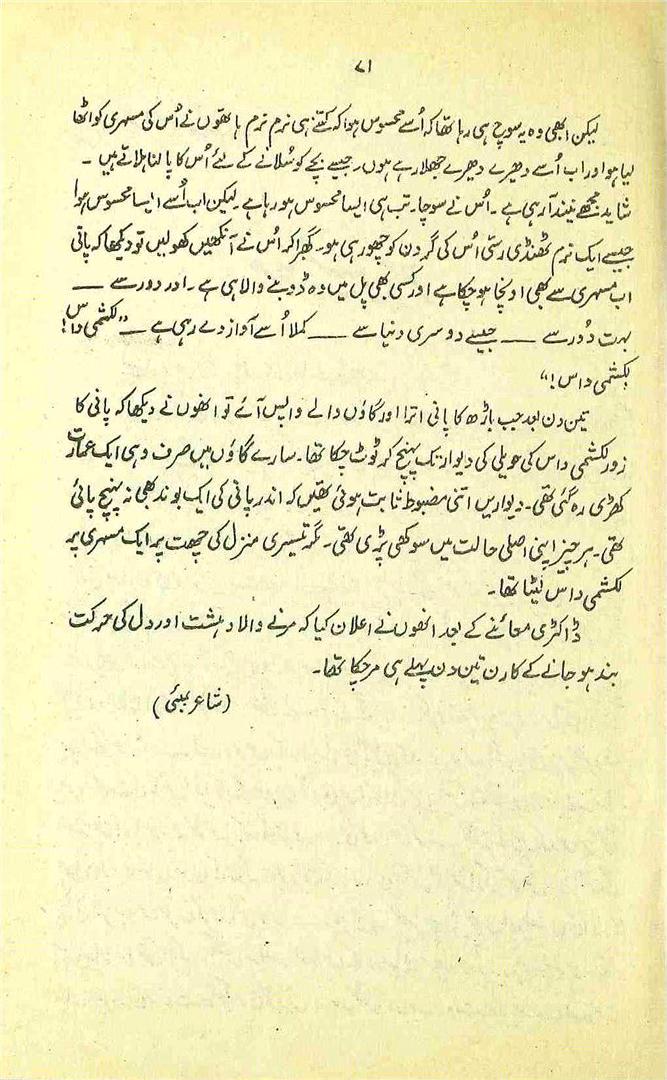 ۷۱
لیکن ابھی وہ یہ سوچ ہی رہا تھا کہ اُسے محسوس ہوا کہ کتنے ہی نرم نرم ہاتھوں نے اُس کی مسہری کو اٹھا
لیا ہو اور اب اُسے دھیرے دھیرے جھلا رہے ہوں۔ جیسے بچے کو سُلانے کے لئے اُس کا پالنا ہلاتے ہیں۔
شاید مجھے نیند آ رہی ہے۔ اُس نے سوچا۔ تب ہی ایسا محسوس ہو رہا ہے۔ لیکن اب اُسے ایسا محسوس ہوا
جیسے ایک نرم ٹھنڈی رسّی اُس کی گردن کو چھو رہی ہو۔ گھبرا کر اُس نے آنکھیں کھولیں تو دیکھا کہ پانی
اب مسہری سے بھی اونچا ہو چکا ہے اور کسی بھی پل میں وہ ڈوبنے والا ہی ہے۔ اور دور سے ــــ
بہت دُور سے ــــ جیسے دوسری دنیا سے ــــ کملا اُسے آواز دے رہی ہے ــ ”لکشمی داس!
لکشمی داس!“
تین دن بعد جب باڑھ کا پانی اترا اور گاؤں والے واپس آئے تو انھوں نے دیکھا کہ پانی کا
زور لکشمی داس کی حویلی کی دیوار تک پہنچ کر ٹوٹ چکا تھا۔ سارے گاؤں میں صرف وہی ایک عمارت
کھڑی رہ گئی تھی۔ دیواریں اتنی مضبوط ثابت ہوئی تھیں کہ اندر پانی کی ایک بوند بھی نہ پہنچ پائی
تھی۔ ہر چیز اپنی اصلی حالت میں سوکھی پڑی تھی۔ مگر تیسری منزل کی چھت پر ایک مسہری پر
لکشمی داس لیٹا تھا۔
ڈاکٹری معائنے کے بعد انھوں نے اعلان کیا کہ مرنے والا دہشت اور دل کی حرکت
بند ہو جانے کے کارن تین دن پہلے ہی مر چکا تھا۔
(شاعر بمبئی)